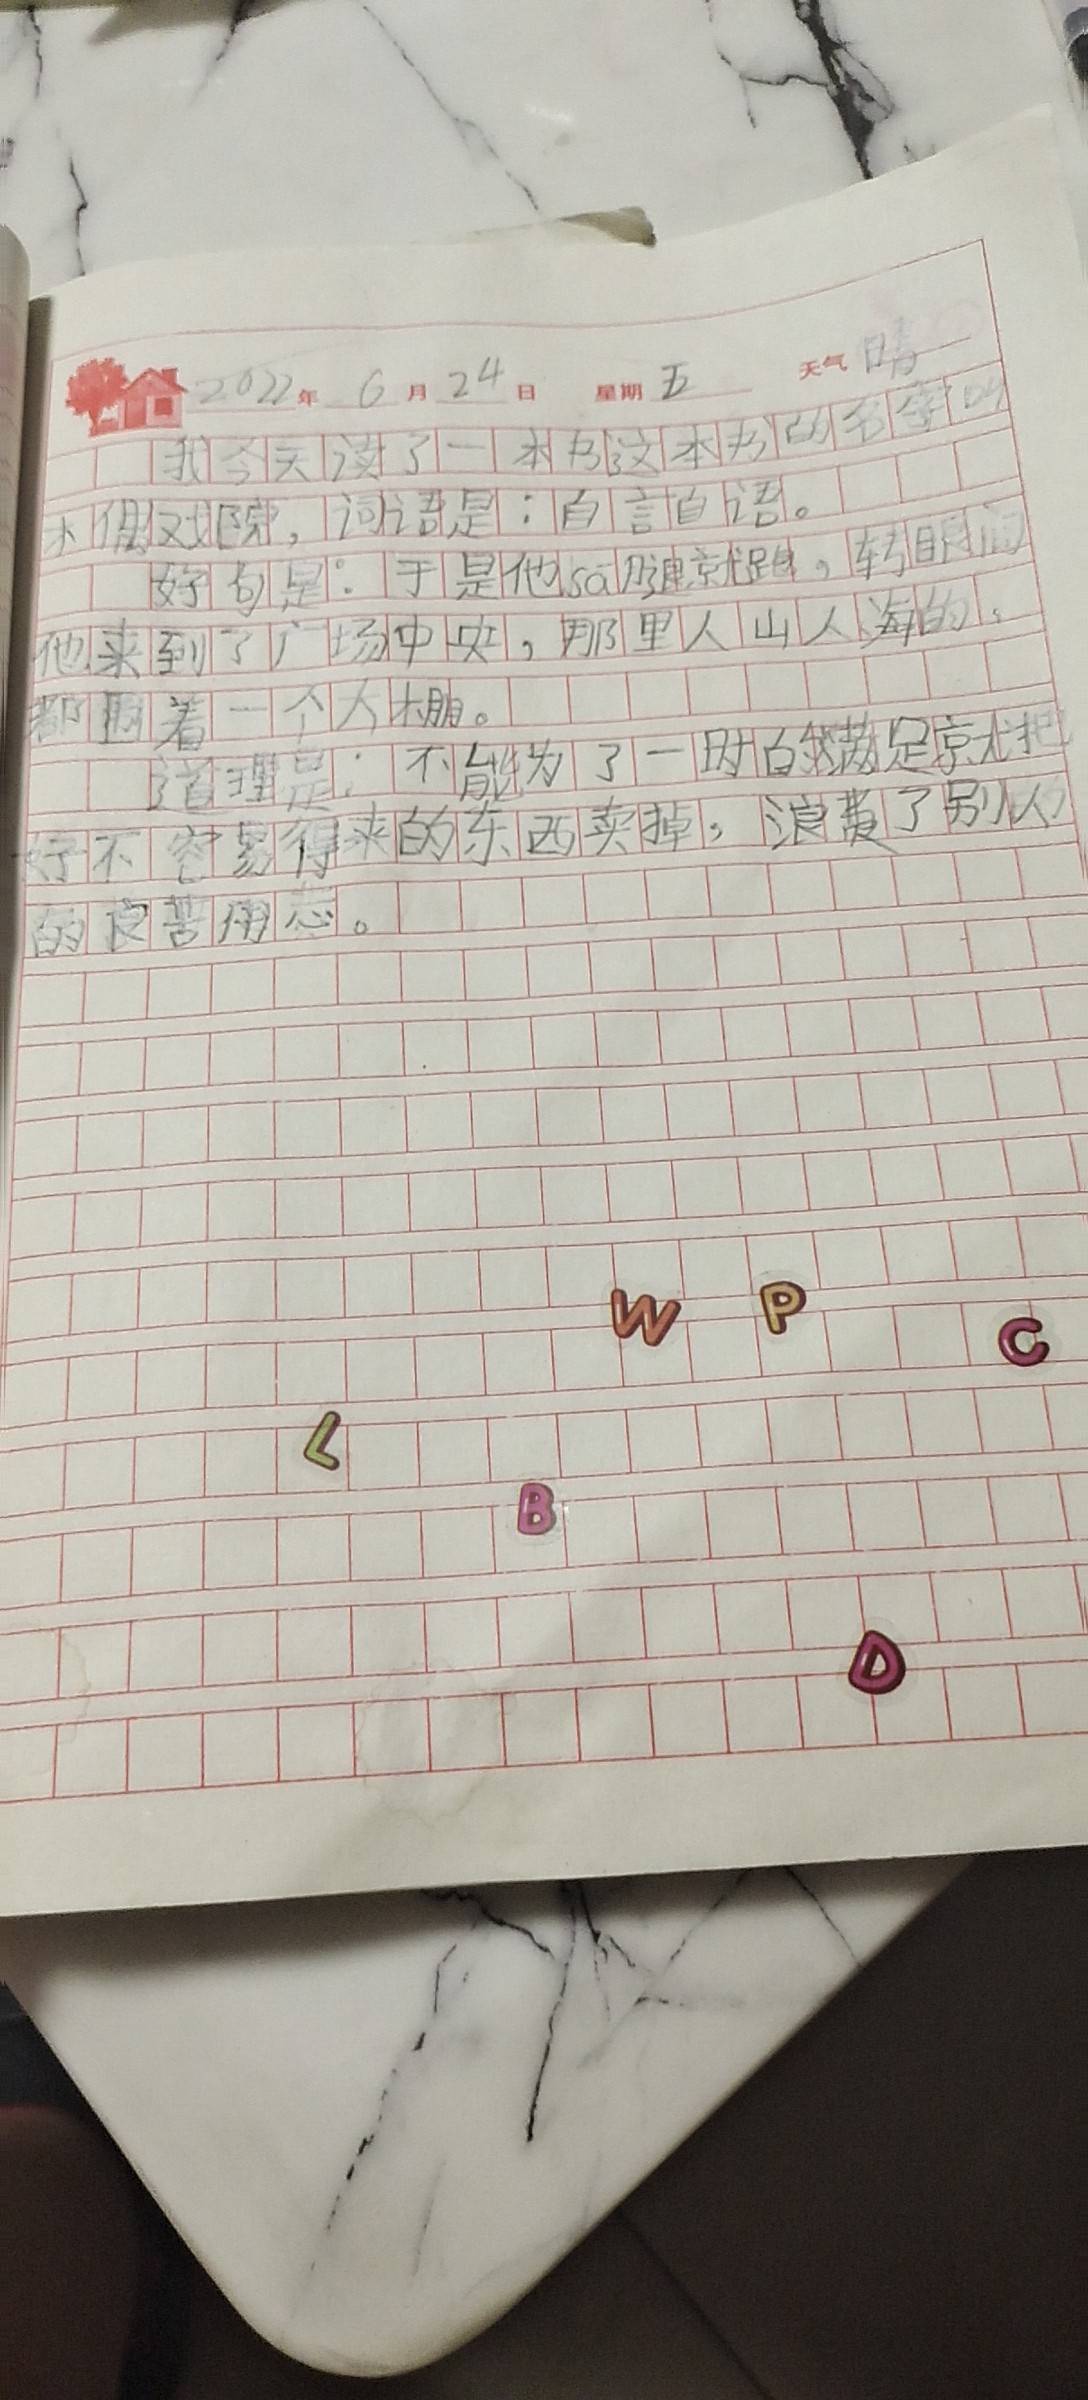 2022年 6月 24日 星期五 天气 晴
我今天读了一本书这本书的名字叫
木偶戏院，词语是：自言自语。
好句是：于是他sā腿就跑，转眼间
他来到了广场中央，那里人山人海的，
都围着一个大棚。
道理是：不能为了一时自我满足就把
好不容易得来的东西卖掉，浪费了别人
的良苦用
W P
C
L
B
D